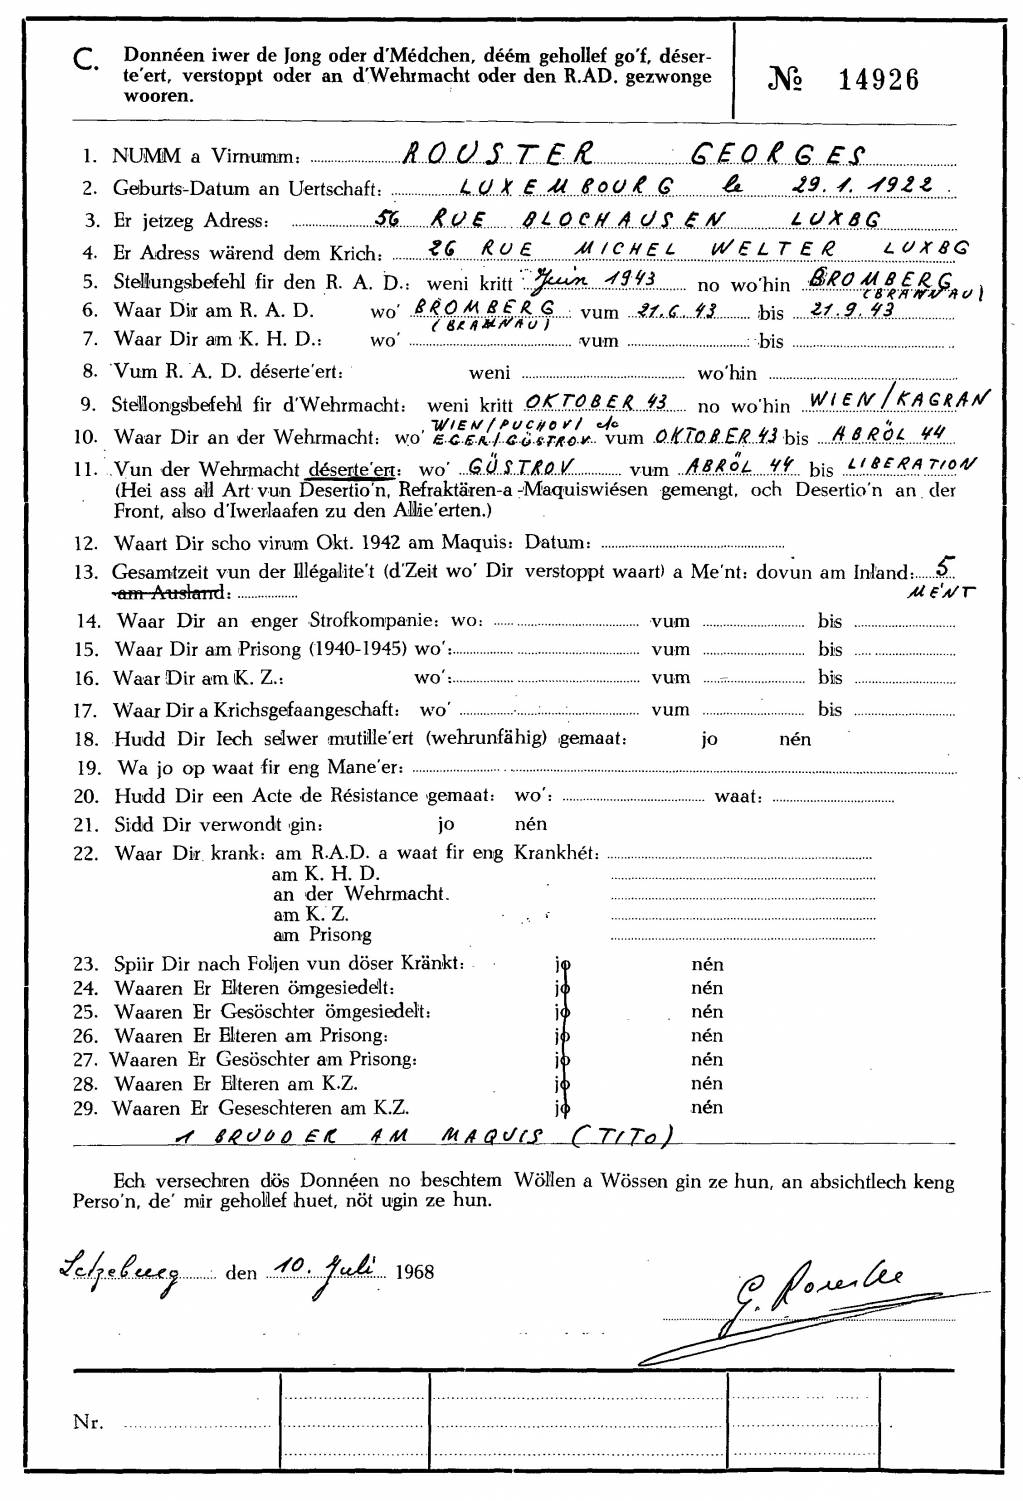 C. Donnéen iwer de Jong oder d'Médchen, déém gehollef go'f, déser-
te'ert, verstoppt oder an d'Wehrmacht oder den R.AD. gezwonge
wooren.
№ 14926
1. NUMM a Virnumm: ROUSTER GEORGES
2. Geburts-Datum an Uertschaft: LUXEMBOURG le 29.1.1922.
3. Er jetzeg Adress: 56 RUE BLOCHAUSEN LUXBG
4. Er Adress wärend dem Krich: 26 RUE MICHEL WELTER LUXBG
5. Stellungsbefehl fir den R. A. D.: weni kritt Juin 1943 no wo'hin BROMBERG
(BRANNAU)
6. Waar Dir am R. A. D. wo' BROMBERG vum 21.6.43 bis 21.9.43
(BRANNAU)
7. Waar Dir am K. H. D.: wo' vum bis
8. Vum R. A. D. déserte'ert: weni wo'hin
9. Stellongsbefehl fir d'Wehrmacht: weni kritt OKTOBER 43 no wo'hin WIEN/KAGRAN
WIEN/PUCHOV/
10. Waar Dir an der Wehrmacht: wo' EGER/GÜSTROV vum OKTOBER 43 bis ABRÖL 44
11. Vun der Wehrmacht déserte'ert: wo' GÜSTROV vum ABRÖL 44 bis LIBERATION
(Hei ass all Art vun Desertio'n, Refraktären-a -Maquiswiésen gemengt, och Desertio'n an der
Front, also d'Iwerlaafen zu den Allie'erten.)
12. Waart Dir scho virum Okt. 1942 am Maquis: Datum:
13. Gesamtzeit vun der Illégalite't (d'Zeit wo' Dir verstoppt waart) a Me'nt: dovun am Inland: 5
am Ausland: ME'NT
14. Waar Dir an enger Strofkompanie: wo: vum bis
15. Waar Dir am Prisong (1940-1945) wo': vum bis
16. Waar Dir am K. Z.: wo': vum bis
17. Waar Dir a Krichsgefaangeschaft: wo' vum bis
18. Hudd Dir Iech selwer mutille'ert (wehrunfähig) gemaat: jo nén
19. Wa jo op waat fir eng Mane'er:
20. Hudd Dir een Acte de Résistance gemaat: wo': waat:
21. Sidd Dir verwondt gin: jo nén
22. Waar Dir krank: am R.A.D. a waat fir eng Krankhét:
am K. H. D.
an der Wehrmacht.
am K. Z.
am Prisong
23. Spiir Dir nach Foljen vun döser Kränkt: jo nén
24. Waaren Er Elteren ömgesiedelt: jo nén
25. Waaren Er Gesöschter ömgesiedelt: jo nén
26. Waaren Er Elteren am Prisong: jo nén
27. Waaren Er Gesöschter am Prisong: jo nén
28. Waaren Er Elteren am K.Z. jo nén
29. Waaren Er Geseschteren am K.Z. jo nén
1 BRUDDER AM MAQUIS (TITO)
Ech versechren dös Donnéen no beschtem Wöllen a Wössen gin ze hun, an absichtlech keng
Perso'n, de' mir gehollef huet, nöt ugin ze hun.
Letzeburg den 10. Juli 1968
G. Rouster
Nr.